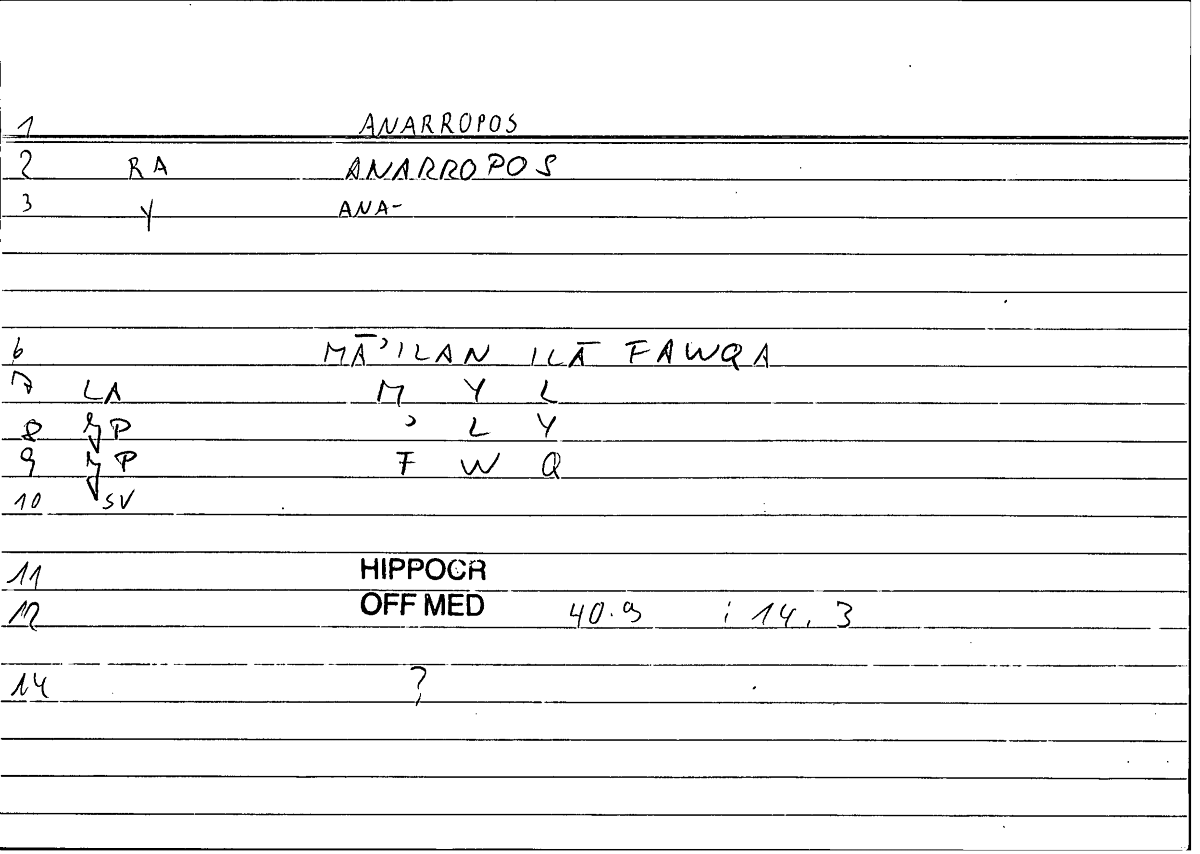 1 ANARROPOS
2 RA ANARROPOS
3 Y ANA-
6 MĀʾILAN ILĀ FAWQA
7 LA M Y L
8 P ʾ L Y
9 P F W Q
10 SV
11 HIPPOCR
12 OFF MED 40.9 ; 14, 3
14 ?